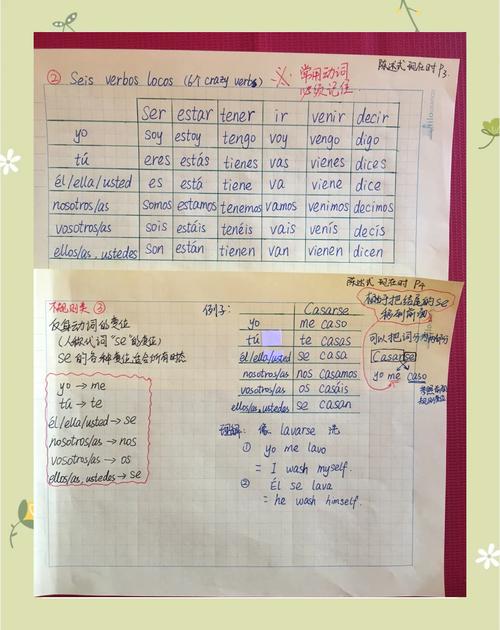 陈述式 现在时 P3.
② Seis verbos locos (6个crazy verbs) ※: 常用动词
必须记住.
ser estar tener ir venir decir
yo soy estoy tengo voy vengo digo
tú eres estás tienes vas vienes dices
él/ella/usted es está tiene va viene dice
nosotros/as somos estamos tenemos vamos venimos decimos
vosotros/as sois estáis tenéis vais venís decís
ellos/as, ustedes son están tienen van vienen dicen
陈述式 现在时 P4
不规则类 ③
反身动词的变位
(人称代词"se"的变位)
se的各种变位适合所有时态
yo → me
tú → te
él/ella/usted → se
nosotros/as → nos
vosotros/as → os
ellos/as, ustedes → se
例子:
Casarse
yo me caso
tú te casas
él/ella/usted se casa
nosotros/as nos casamos
vosotros/as os casáis
ellos/as, ustedes se casan
理解: 像 lavarse 洗
① yo me lavo
= I wash myself.
② Él se lava
= he wash himself.
把结尾的se
移到前面
可以把词分为两部分
Casarse
yo me caso